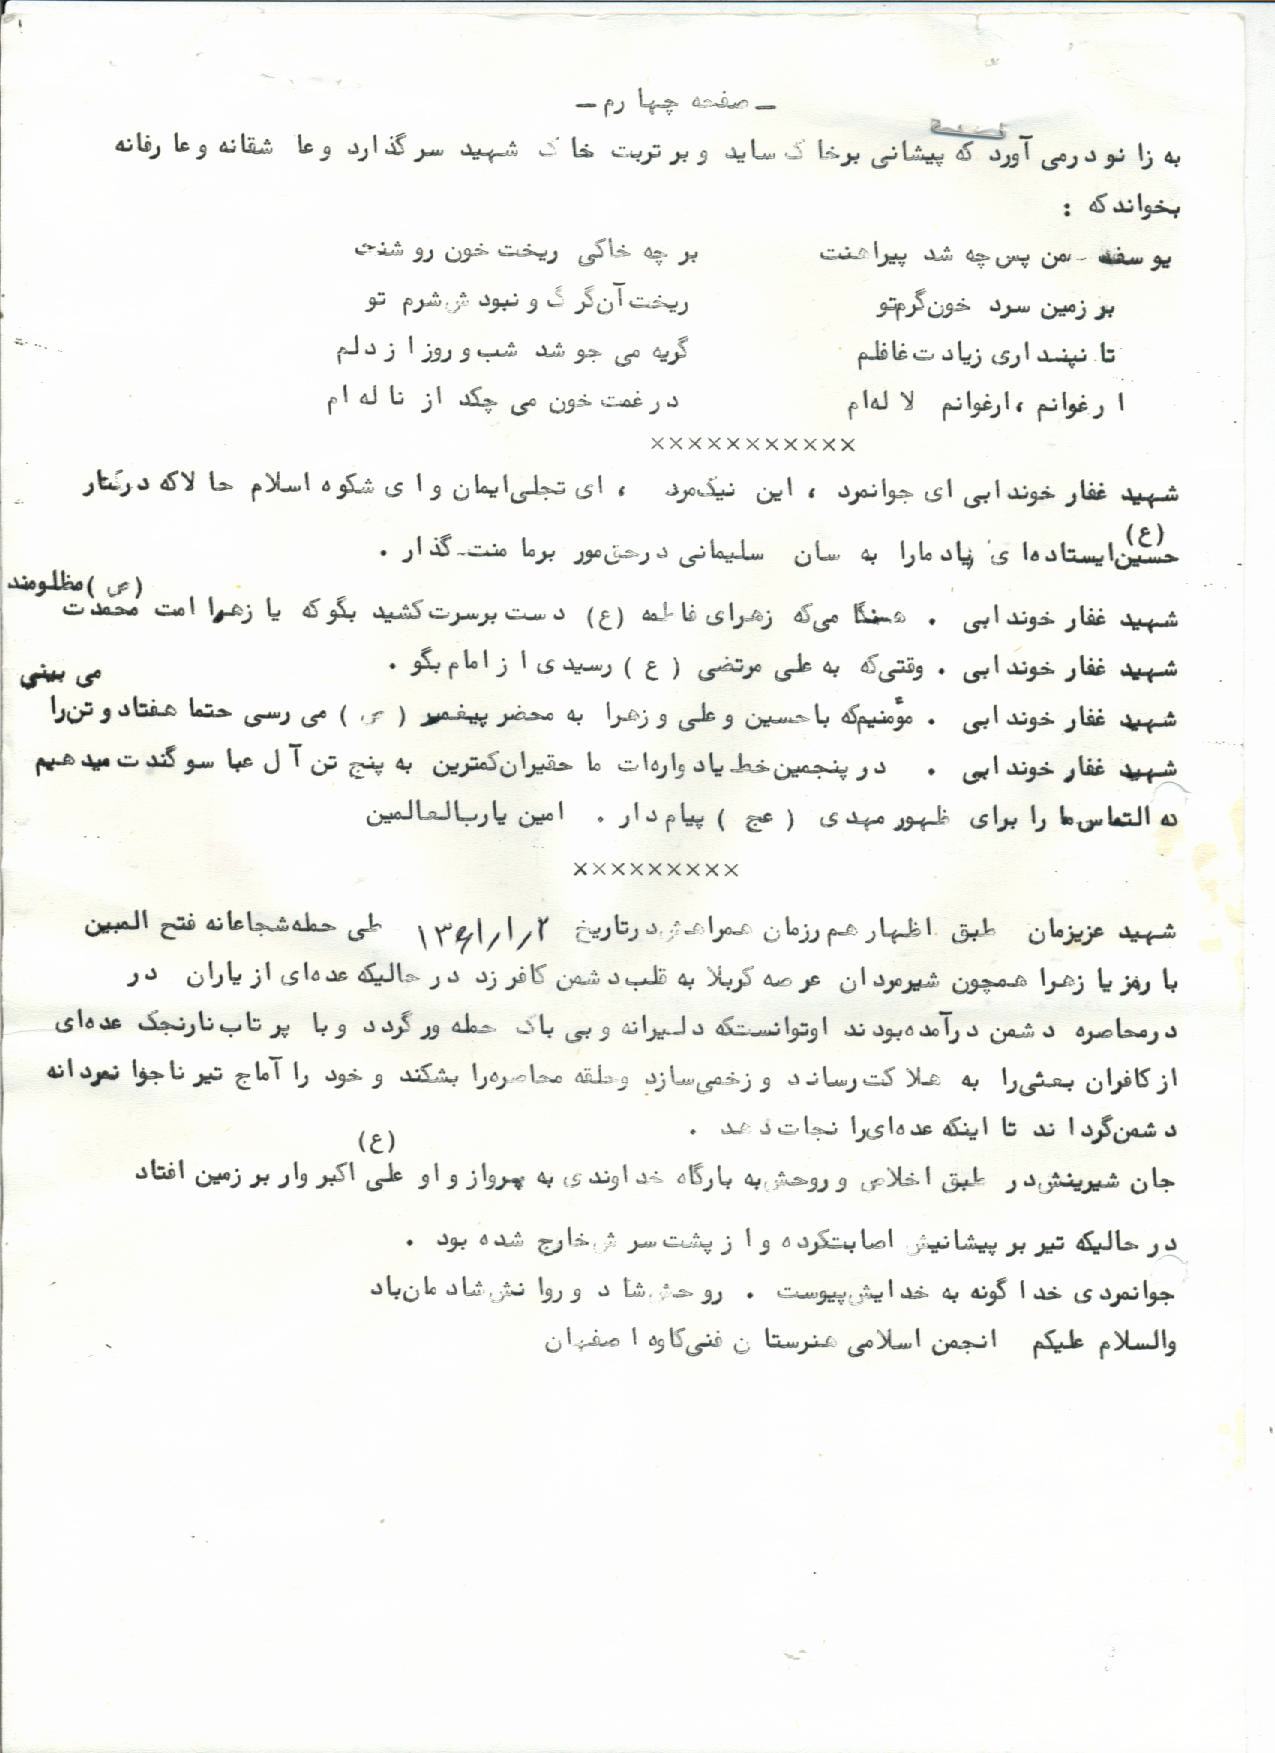 ـ صفحه چهارم ـ
به زانو درمی آورد که پیشانی برخاک ساید و بر تربت خاک شهید سر گذارد و عاشقانه و عارفانه
بخواند که :
یوسف من پس چه شد پیراهنت    بر چه خاکی ریخت خون روشنت
بر زمین سرد خون گرم تو    ریخت آن گرگ و نبودش شرم تو
تا نپنداری زیادت غافلم    گریه می جوشد شب و روز از دلم
ارغوانم ، ارغوانم لاله ام    در غمت خون می چکد از ناله ام
×××××××××××
شهید غفار خوندابی ای جوانمرد ، این نیک مرد ، ای تجلی ایمان و ای شکوه اسلام حالا که درکنار
حسین (ع) ایستاده ای زیاد مارا به سان سلیمانی درحق مور برما منت گذار .
شهید غفار خوندابی . هنگامی که زهرای فاطمه (ع) دست برسرت کشید بگو که یا زهرا امت محمدت (ص) مظلومند
شهید غفار خوندابی . وقتی که به علی مرتضی ( ع ) رسیدی از امام بگو .
شهید غفار خوندابی . مؤمنیم که باحسین و علی و زهرا به محضر پیغمبر ( ص ) می رسی حتما هفتاد و تن را می بینی
شهید غفار خوندابی . در پنجمین خط یادواره ات ما حقیران کمترین به پنج تن آل عبا سوگندت میدهیم
که التماس ما را برای ظهور مهدی ( عج ) پیام دار . امین یارب العالمین
×××××××××
شهید عزیزمان طبق اظهار هم رزمان همراهش درتاریخ ۱۳۶۱/۱/۲ طی حمله شجاعانه فتح المبین
با رمز یا زهرا همچون شیرمردان عرصه کربلا به قلب دشمن کافر زد در حالیکه عده ای از یاران در
درمحاصره دشمن درآمده بودند اوتوانستکه دلیرانه و بی باک حمله ور گردد و با پرتاب نارنجک عده ای
از کافران بعثی را به هلاکت رساند و زخمی سازد وحلقه محاصره را بشکند و خود را آماج تیر ناجوانمردانه
دشمن گرداند تا اینکه عده ای را نجات دهد .
جان شیرینش در طبق اخلاص و روحش به بارگاه خداوندی به پرواز و او علی اکبر (ع) وار بر زمین افتاد
در حالیکه تیر بر پیشانیش اصابت کرده و از پشت سرش خارج شده بود .
جوانمردی خدا گونه به خدایش پیوست . روحش شاد و روانش شادمان باد
والسلام علیکم انجمن اسلامی هنرستان فنی کاوه اصفهان